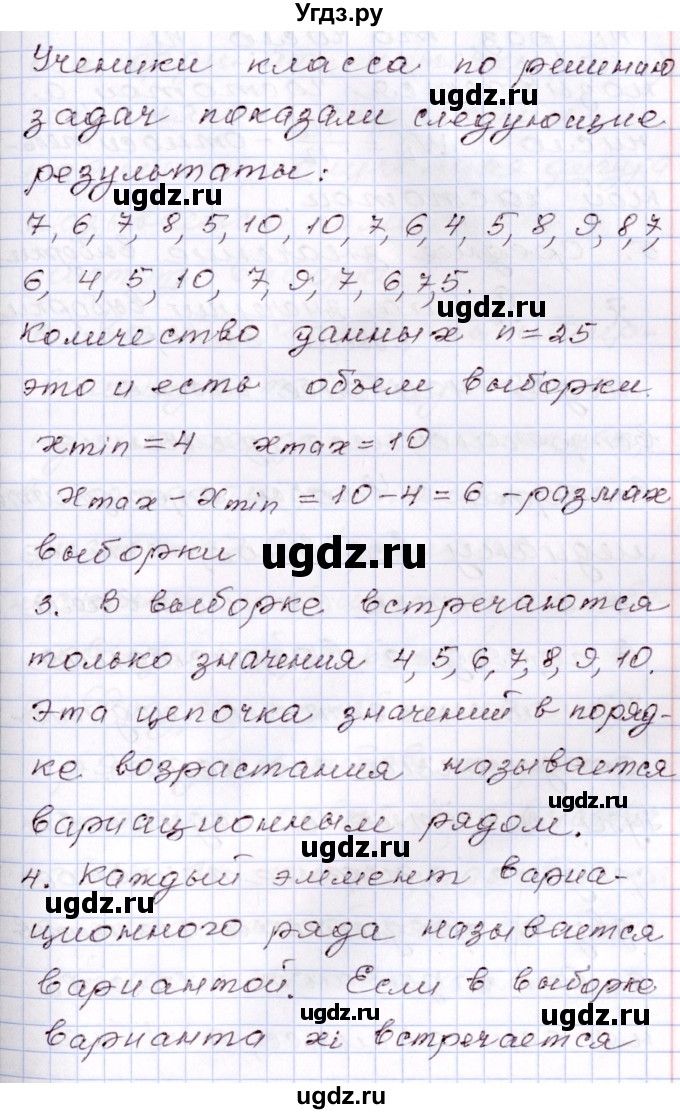 Угдз.ру
Ученики класса по решению
ugdz.ru
задач показали следующие
результаты:
ugdz.ru
7, 6, 7, 8, 5, 10, 10, 7, 6, 4, 5, 8, 9, 8, 7,
6, 4, 5, 10, 7, 9, 7, 6, 7, 5.
ugdz.ru
Количество данных n = 25
это и есть объем выборки.
xmin = 4 xmax = 10
xmax - xmin = 10 - 4 = 6 - размах
выборки
ugdz.ru
3. В выборке встречаются
только значения 4, 5, 6, 7, 8, 9, 10.
Эта цепочка значений в поряд-
ке возрастания называется
ugdz.ru
вариационным рядом.
4. Каждый эммент вариа-
ugdz.ru
ционного ряда называется
вариантой. Если в выборке
ugdz.ru
варианта xi встречается
ugdz.ru